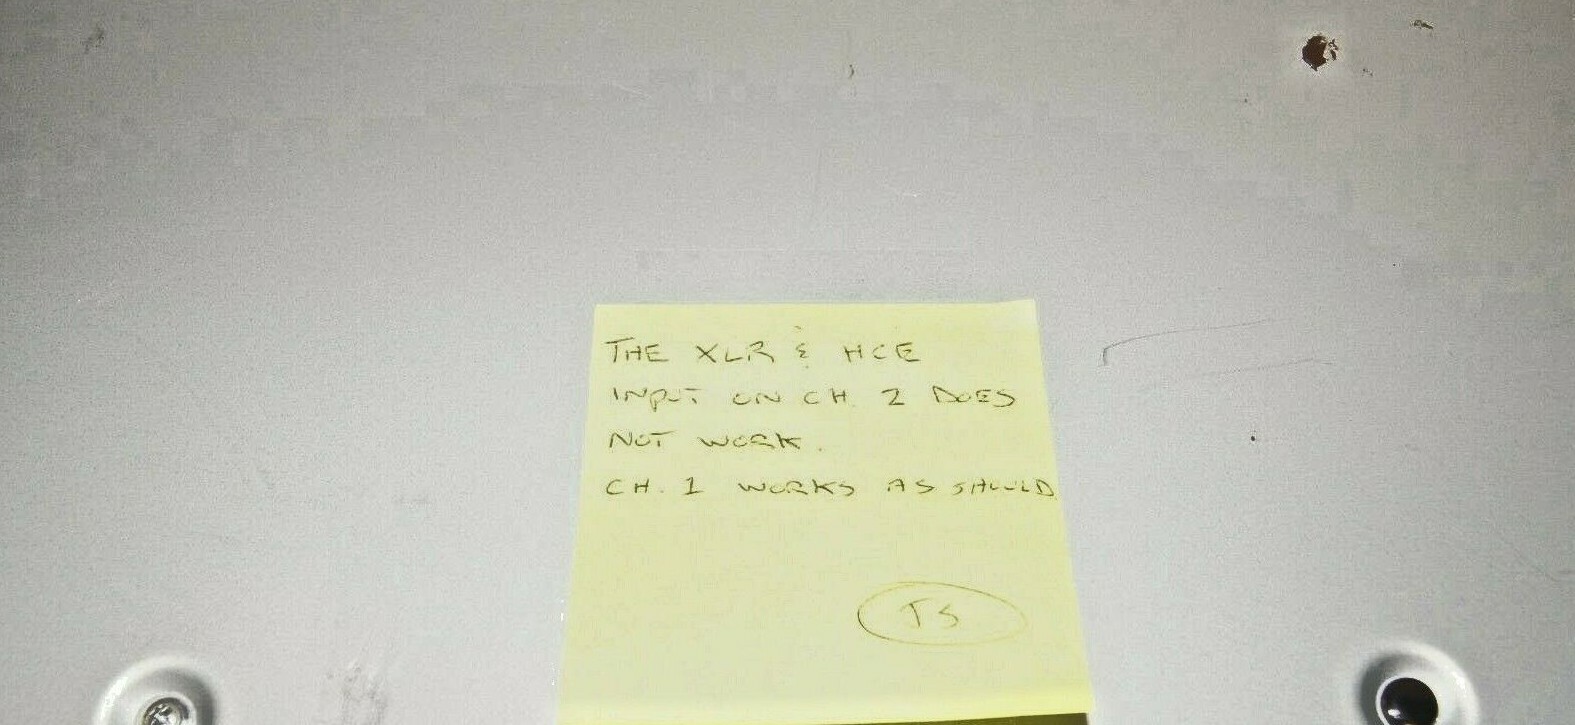 THE XLR & HCE
INPUT ON CH. 2 DOES
NOT WORK.
CH. 1 WORKS AS SHOULD
TS